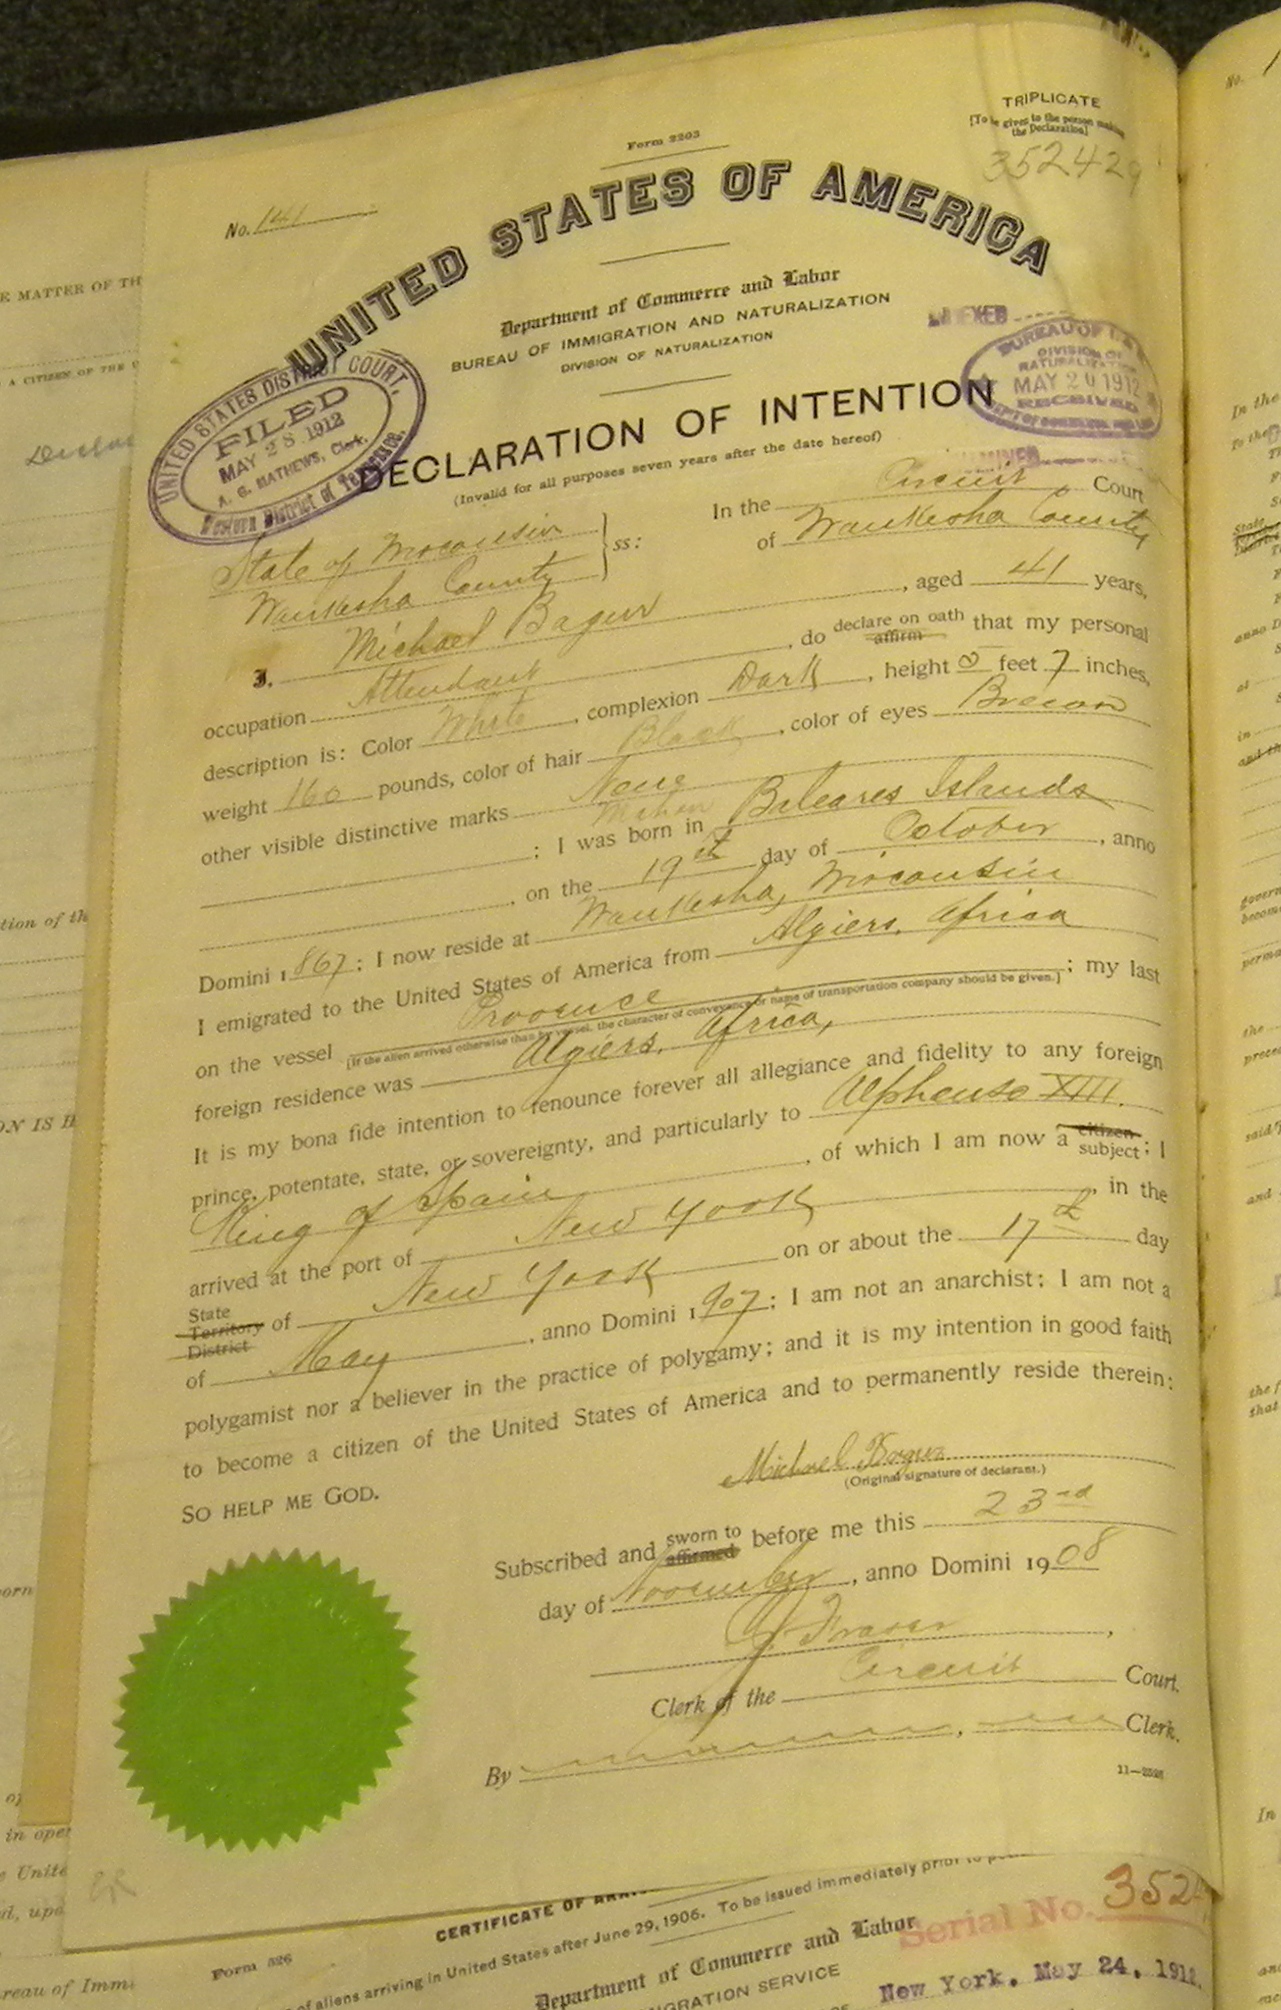 TRIPLICATE
[To be given to the person making
the Declaration]
352429
Form 2203
No. 141
UNITED STATES OF AMERICA
Department of Commerce and Labor
BUREAU OF IMMIGRATION AND NATURALIZATION
DIVISION OF NATURALIZATION
INDEXED
BUREAU OF
DIVISION OF
NATURALIZATION
MAY 20 1912
RECEIVED
UNITED STATES DISTRICT COURT.
FILED
MAY 28 1912
A. G. MATHEWS, Clerk.
Western District of Tennessee.
DECLARATION OF INTENTION
(Invalid for all purposes seven years after the date hereof)
In the Circuit Court
State of Wisconsin
Waukesha County
ss:
of Waukesha County
I, Michael Bagur, aged 41 years,
occupation Attendant, do declare on oath affirm that my personal
description is: Color White, complexion Dark, height 5 feet 7 inches,
weight 160 pounds, color of hair Black, color of eyes Brown
other visible distinctive marks None
; I was born in Mahon Baleares Islands
, on the 19th day of October, anno
Domini 1867; I now reside at Waukesha, Wisconsin
I emigrated to the United States of America from Algiers, Africa
on the vessel Provence; my last
[If the alien arrived otherwise than by vessel, the character of conveyance or name of transportation company should be given.]
foreign residence was Algiers, Africa,
It is my bona fide intention to renounce forever all allegiance and fidelity to any foreign
prince, potentate, state, or sovereignty, and particularly to Alphonso XIII.
King of Spain, of which I am now a citizen subject; I
arrived at the port of New York, in the
State Territory District of New York on or about the 17th day
of May, anno Domini 1907; I am not an anarchist; I am not a
polygamist nor a believer in the practice of polygamy; and it is my intention in good faith
to become a citizen of the United States of America and to permanently reside therein:
SO HELP ME GOD.
Michael Bagur
(Original signature of declarant.)
Subscribed and sworn to affirmed before me this 23rd
day of November, anno Domini 1908
Fraser,
Clerk of the Circuit Court.
By , Clerk.
CERTIFICATE OF
of aliens arriving in United States after June 29, 1906. To be issued immediately prior to
Form 526
Department of Commerce and Labor
Serial No. 352
New York, May 24, 1912.
E MATTER OF TH
A CITIZEN OF THE U
tion of th
ON IS H
in oper
e Unite
d, upo
reau of Immi
No. 1
In the
State
anno D
at
in
govern
become
perma
the
preced
said
and
the f
that
In